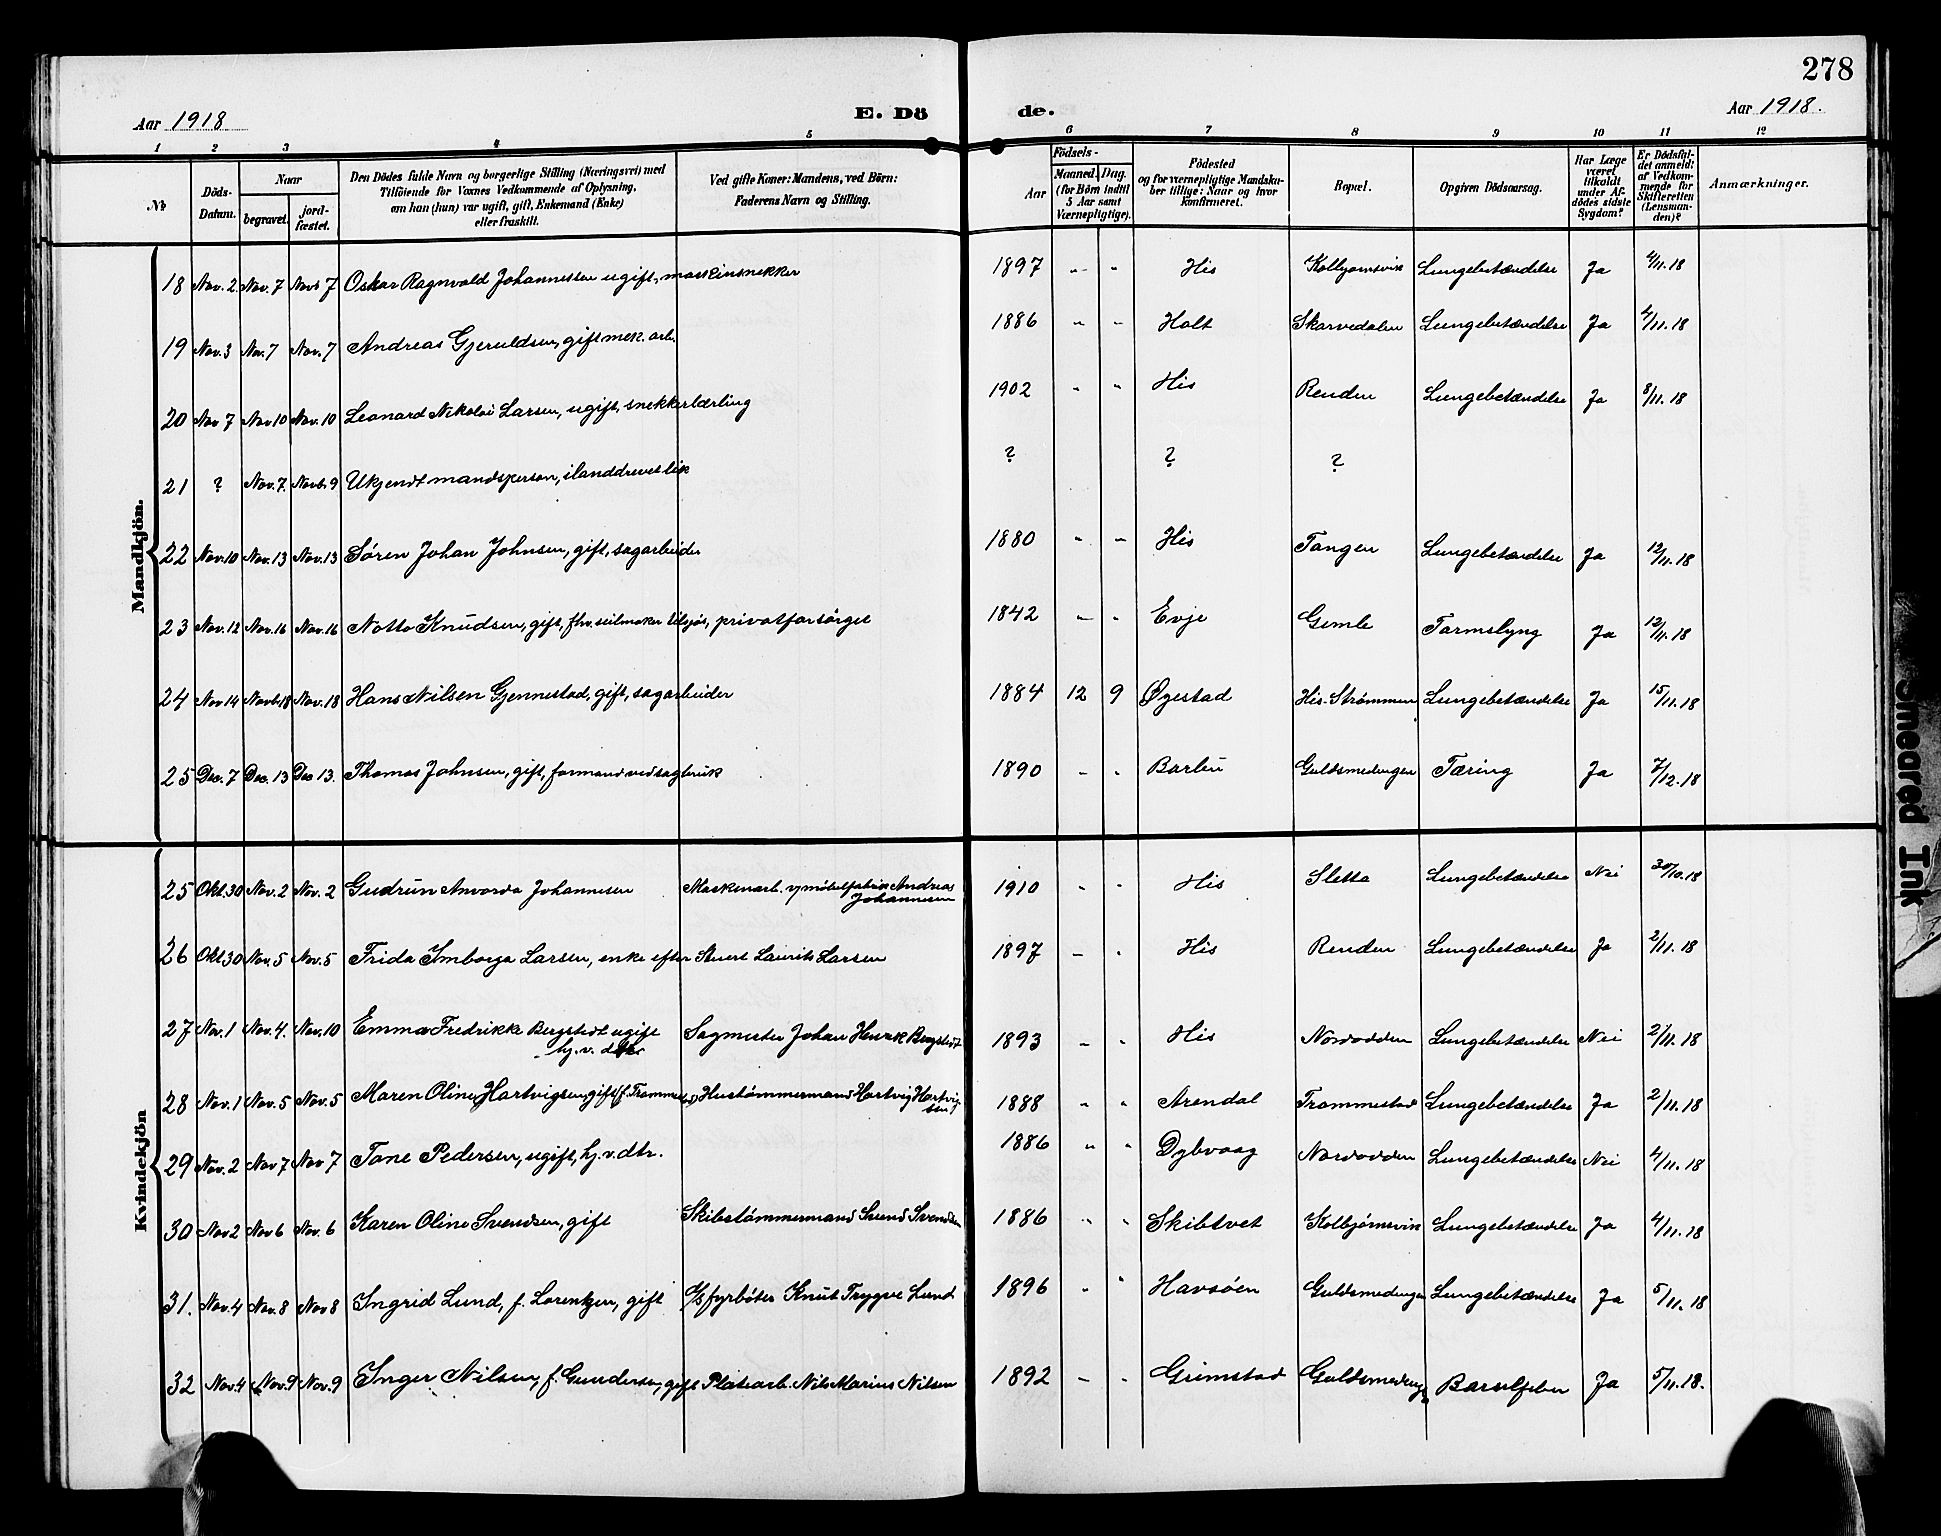 278
Aar 1918
E. Dö
de.
Aar 1918.
1 2 3 4 5 6 7 8 9 10 11 12
No
Döds-Datum.
Naar
begravet.
jord-fæstet.
Den Dödes fulde Navn og borgerlige Stilling (Næringsvei) med
Tilföiende for Voxnes Vedkommende af Oplysning,
om han (hun) var ugift, gift, Enkemand (Enke)
eller fraskilt.
Ved gifte Koner: Mandens, ved Börn:
Faderens Navn og Stilling.
Födsels-
Aar
Maaned. Dag.
(for Börn indtil
5 Aar samt
Værnepligtige).
Födested
og for værnepligtige Mandska-
ber tillige: Naar og hvor
konfirmeret.
Bopæl.
Opgiven Dödsaarsag.
Har Læge
været
tilkaldt
under Af-
dödes sidste
Sygdom?
Er Dödsfal-
det anmeldt
af Vedkom-
mende for
Skifteretten
(Lensman-
den)?
Anmærkninger.
Mandkjön.
18 Nov. 2 Nov. 7 Nov. 7 Oskar Ragnvald Johannessen ugift, maskinsnekker 1897 " " His Kolbjørnsvik Lungebetændelse Ja 4/11.18
19 Nov. 3 Nov. 7 Nov. 7 Andreas Gjeruldsen, gift mek. arb. 1886 " " Holt Skarvedalen Lungebetændelse Ja 4/11.18
20 Nov 7 Nov 10 Nov. 10 Leonard Nikolai Larsen, ugift, snekkerlærling 1902 " " His Renden Lungebetændelse Ja 8/11.18
21 ? Nov. 7. Novb. 9 Ukjendt mandsperson, ilanddrevet lik ? ? ?
22 Nov. 10 Nov. 13 Nov. 13 Søren Johan Johnsen, gift, sagarbeider 1880 " " His Tangen Lungebetændelse Ja 12/11.18
23 Nov. 12 Nov. 16 Nov. 16 Notto Knudsen, gift, fhv. seilmaker tilsjøs, privatforsørget 1842 " " Evje Gimle Tarmslyng Ja 12/11.18
24 Nov 14 Novb. 18 Nov. 18 Hans Nilsen Gjennestad, gift, sagarbeider 1884 12 9 Øyestad His-Strømmen Lungebetændelse Ja 15/11.18
25 Dec. 7 Dec. 13 Dec 13. Thomas Johnsen, gift, formand ved sagbruk 1890 " " Barbu Guldsmedengen Tæring Ja 7/12.18
Kvindekjön
25 Okt. 30 Nov. 2 Nov. 2 Gudrun Anvorda Johannesen Maskinarb. v/ møbelfabrik Andreas
Johannesen 1910 " " His Sletta Lungebetændelse Nei 30/10.18
26 Okt 30 Nov. 5 Nov. 5 Frida Imborga Larsen, enke efter Stuert Laurits Larsen 1897 " " His Renden Lungebetændelse Ja 2/11.18
27 Nov. 1 Nov. 4. Nov. 10 Emma Fredrikke Bergstedt ugift Sagmester Johan Henrik Bergstedt 1893 " " His Nordodden Lungebetændelse Nei 2/11.18
hj. v. dtr
28 Nov. 1 Nov. 5 Nov. 5 Maren Oline Hartvigsen, gift Hustømmermand Hartvig Hartvig-
sen 1888 " " Arendal Trommestad Lungebetændelse Ja 2/11.18
29 Nov. 2 Nov 7 Nov 7 Tone Pedersen, ugift, hj. v. dtr. 1886 " " Dybvaag Nordodden Lungebetændelse Nei 4/11.18
30 Nov 2 Nov 6 Nov. 6 Karen Oline Svendsen, gift Skibstømmermand Svend Svendsen 1886 " " Skibtvet Kolbjørnsvik Lungebetændelse Ja 4/11.18
31. Nov. 4 Nov. 8 Nov 8 Ingrid Lund, f. Lorentzen, gift fyrbøter Knut Trygve Lund 1896 " " Havsøen Guldsmedengen Lungebetændelse Ja 5/11.18
32 Nov. 4 Nov. 9 Nov. 9 Inger Nilsen, f. Gundersen, gift Platearb. Nils Marius Nilsen 1892 " " Grimstad Guldsmedeng Barselfeber Ja 5/11.18.
Smeared Ink